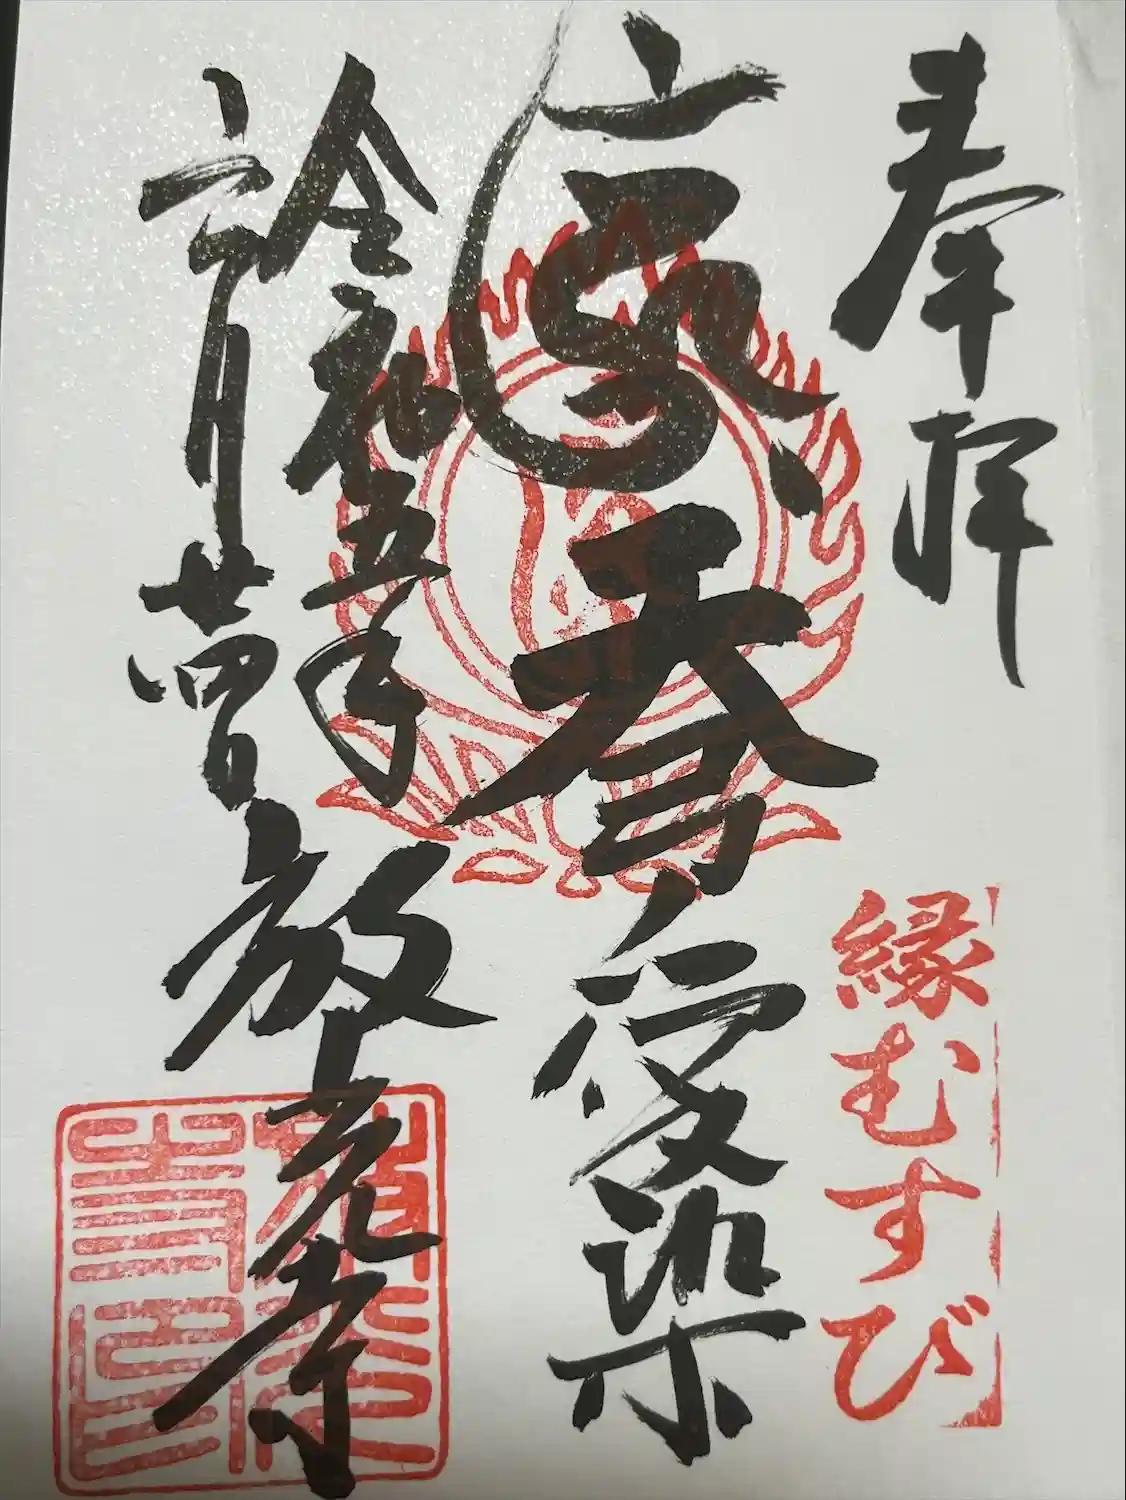 奉拝
縁むすび
天弓愛染
令和五年
二月廿四日
放光寺